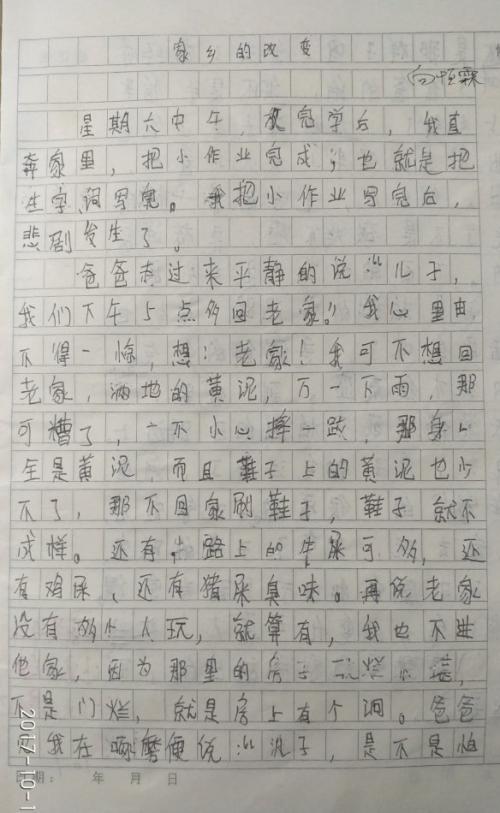 家乡的改变
向恒霖
星期六中午，放完学后，我直
奔家里，把小作业完成；也就是把
生字词写完。我把小作业写完后，
悲剧发生了。
爸爸走过来平静的说：“儿子，
我们下午5点多回老家。”我心里由
不得一惊，想：老家！我可不想回
老家，满地的黄泥，万一下雨，那
可糟了，一不小心摔一跤，那身上
全是黄泥，而且鞋子上的黄泥也少
不了，那不回家刷鞋子，鞋子就不
成样。还有，路上的牛屎可多，还
有鸡屎、还有猪屎臭味。再说老家
没有多少人玩，就算有，我也不进
他家，因为那里的房子
不是门烂，就是房上有个洞。爸爸
见我在啄磨便说：“儿子，是不是怕
日期： 年 月 日
2017-10-1